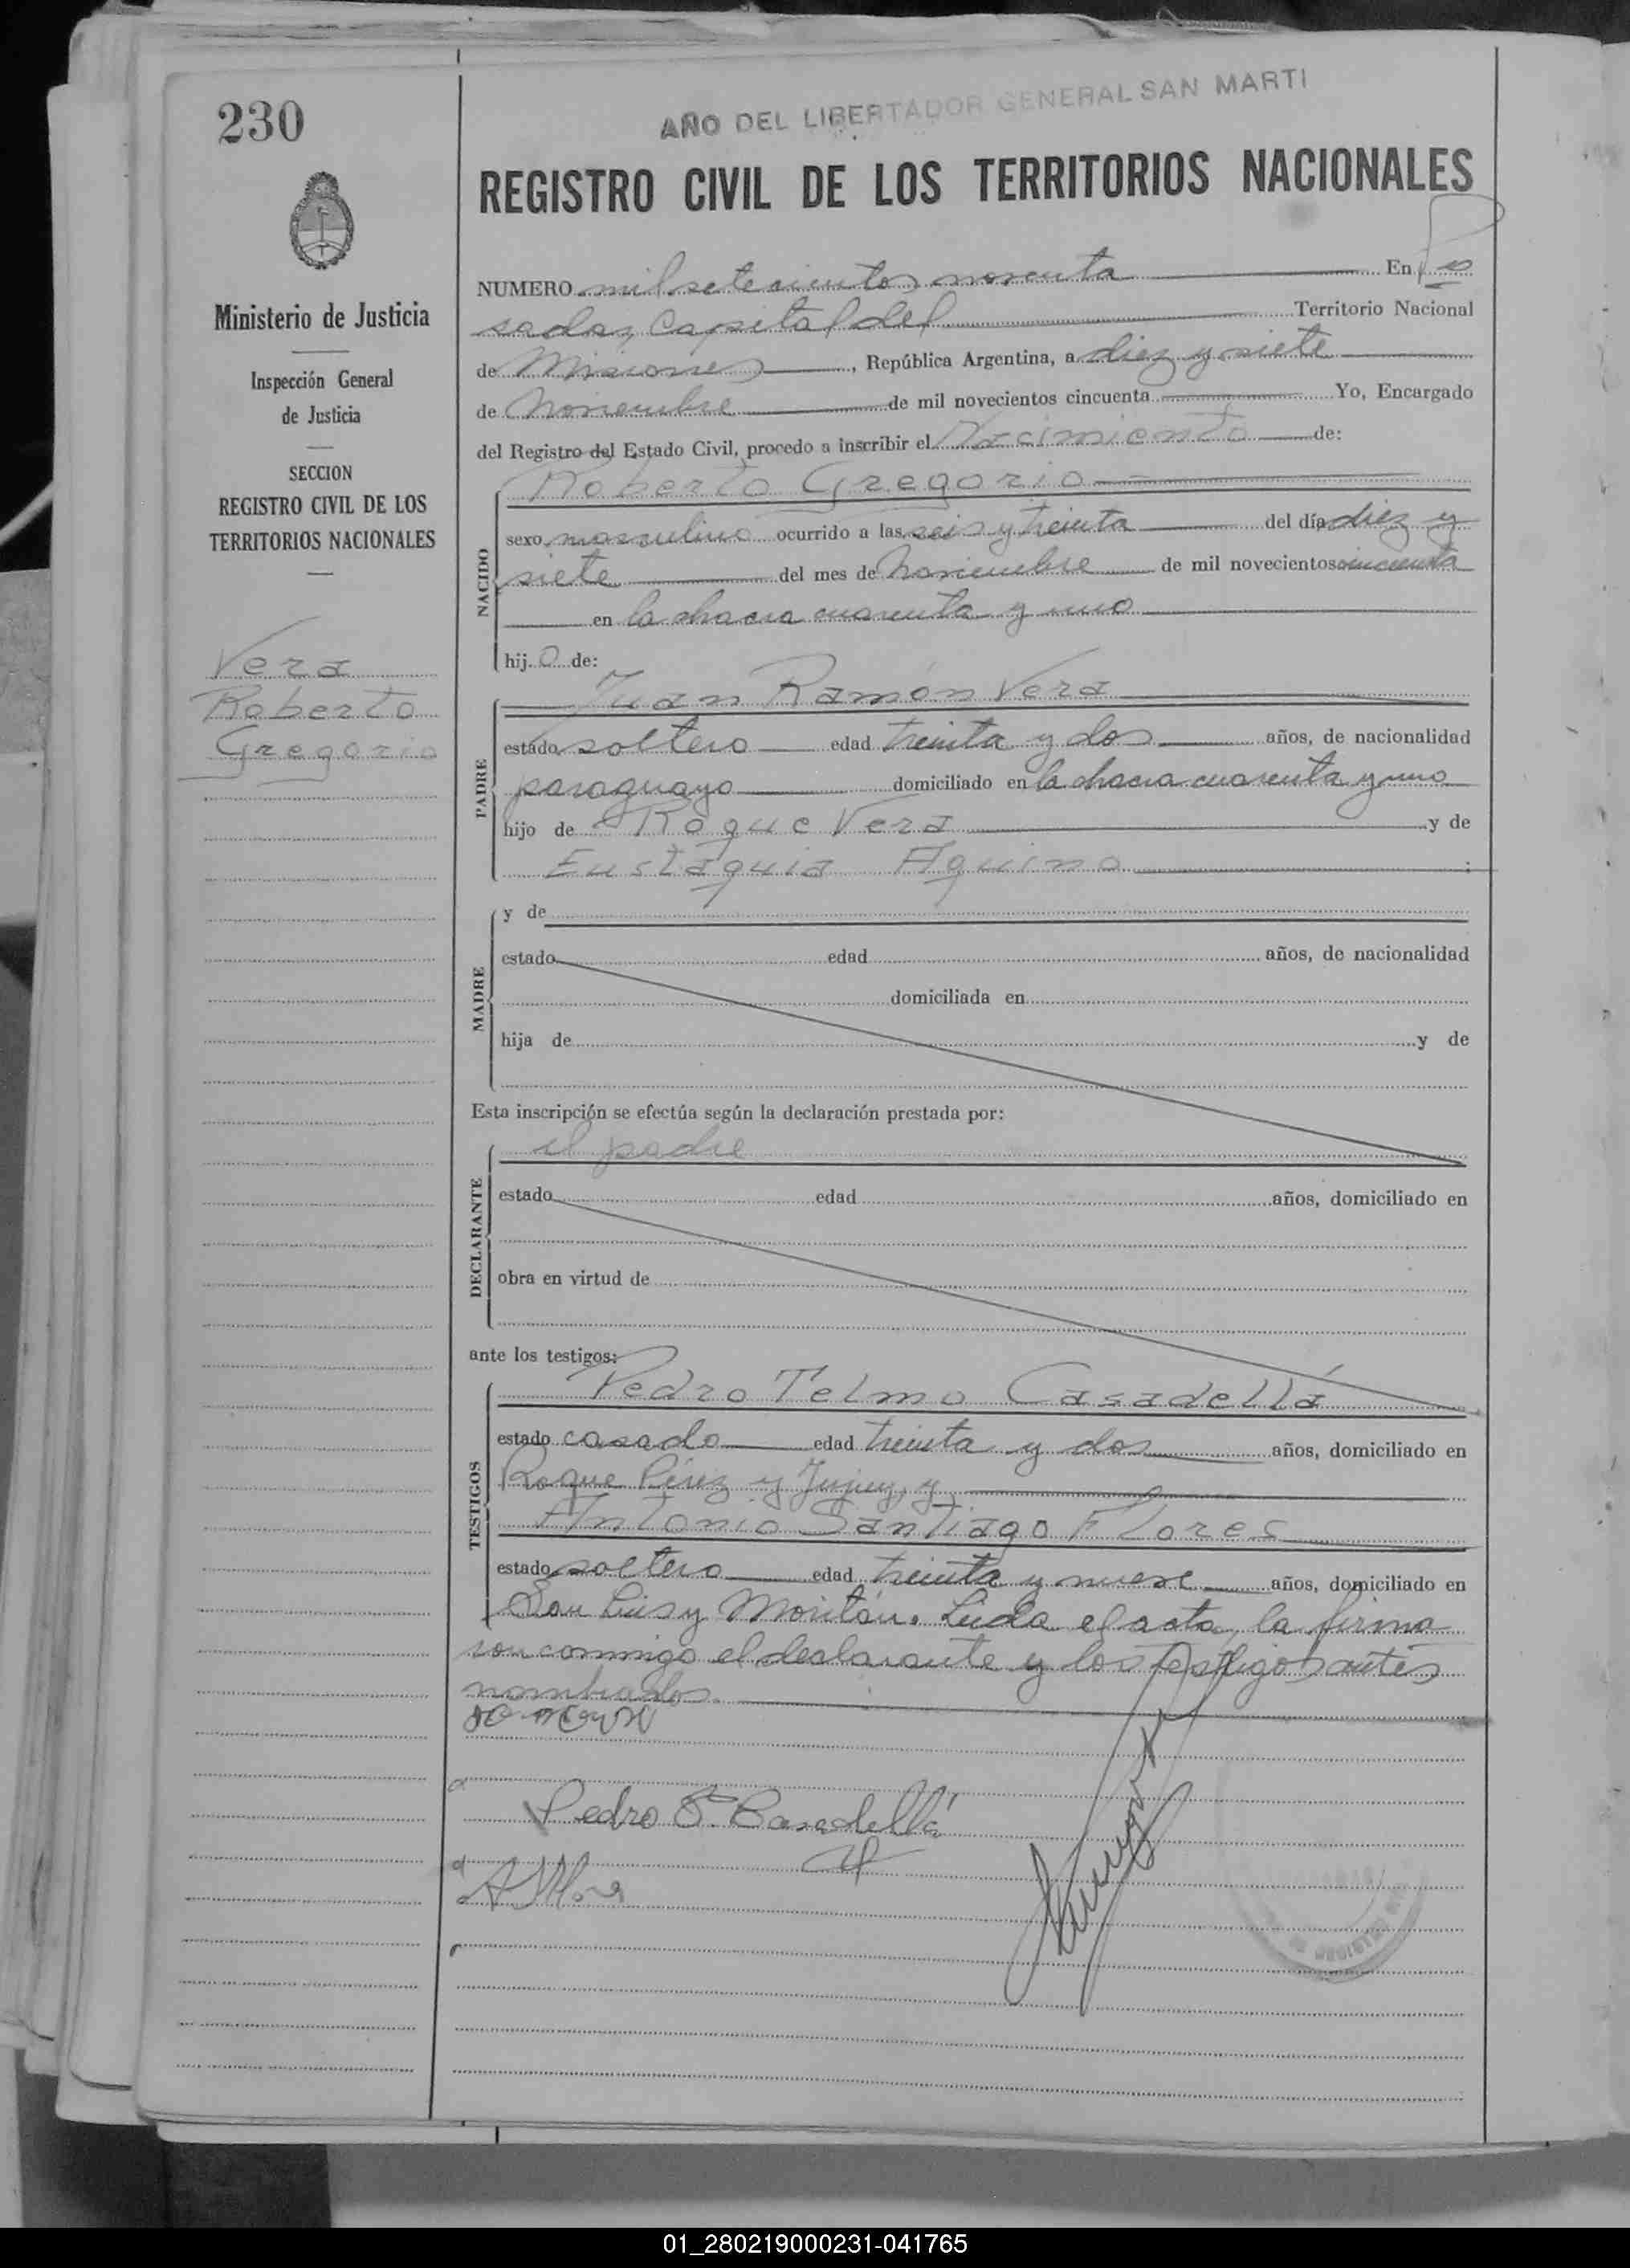 230
AÑO DEL LIBERTADOR GENERAL SAN MARTI
REGISTRO CIVIL DE LOS TERRITORIOS NACIONALES
Ministerio de Justicia
Inspección General
de Justicia
SECCION
REGISTRO CIVIL DE LOS
TERRITORIOS NACIONALES
Vera
Roberto
Gregorio
NUMERO mil setecientos noventa En Po
sadas, Capital del Territorio Nacional
de Misiones, República Argentina, a diez y siete
de Noviembre de mil novecientos cincuenta Yo, Encargado
del Registro del Estado Civil, procedo a inscribir el Nacimiento de:
Roberto Gregorio
NACIDO
sexo masculino ocurrido a las seis y treinta del día diez y
siete del mes de Noviembre de mil novecientos cincuenta
en la chacra cuarenta y uno
hijo de:
Juan Ramón Vera
PADRE
estado soltero edad treinta y dos años, de nacionalidad
paraguayo domiciliado en la chacra cuarenta y uno
hijo de Roque Vera y de
Eustaquia Aquino ;
MADRE
y de
estado edad años, de nacionalidad
domiciliada en
hija de y de
Esta inscripción se efectúa según la declaración prestada por:
el padre
DECLARANTE
estado edad años, domiciliado en
obra en virtud de
ante los testigos:
Pedro Telmo Casadellá
TESTIGOS
estado casado edad treinta y dos años, domiciliado en
Roque Pérez y Jujuy, y
Antonio Santiago Flores
estado soltero edad treinta y nueve años, domiciliado en
San Luis y Moritán. Leída el acta, la firma
ron conmigo el declarante y los testigos antes
nombrados.
Pedro T. Casadellá
01_280219000231-041765